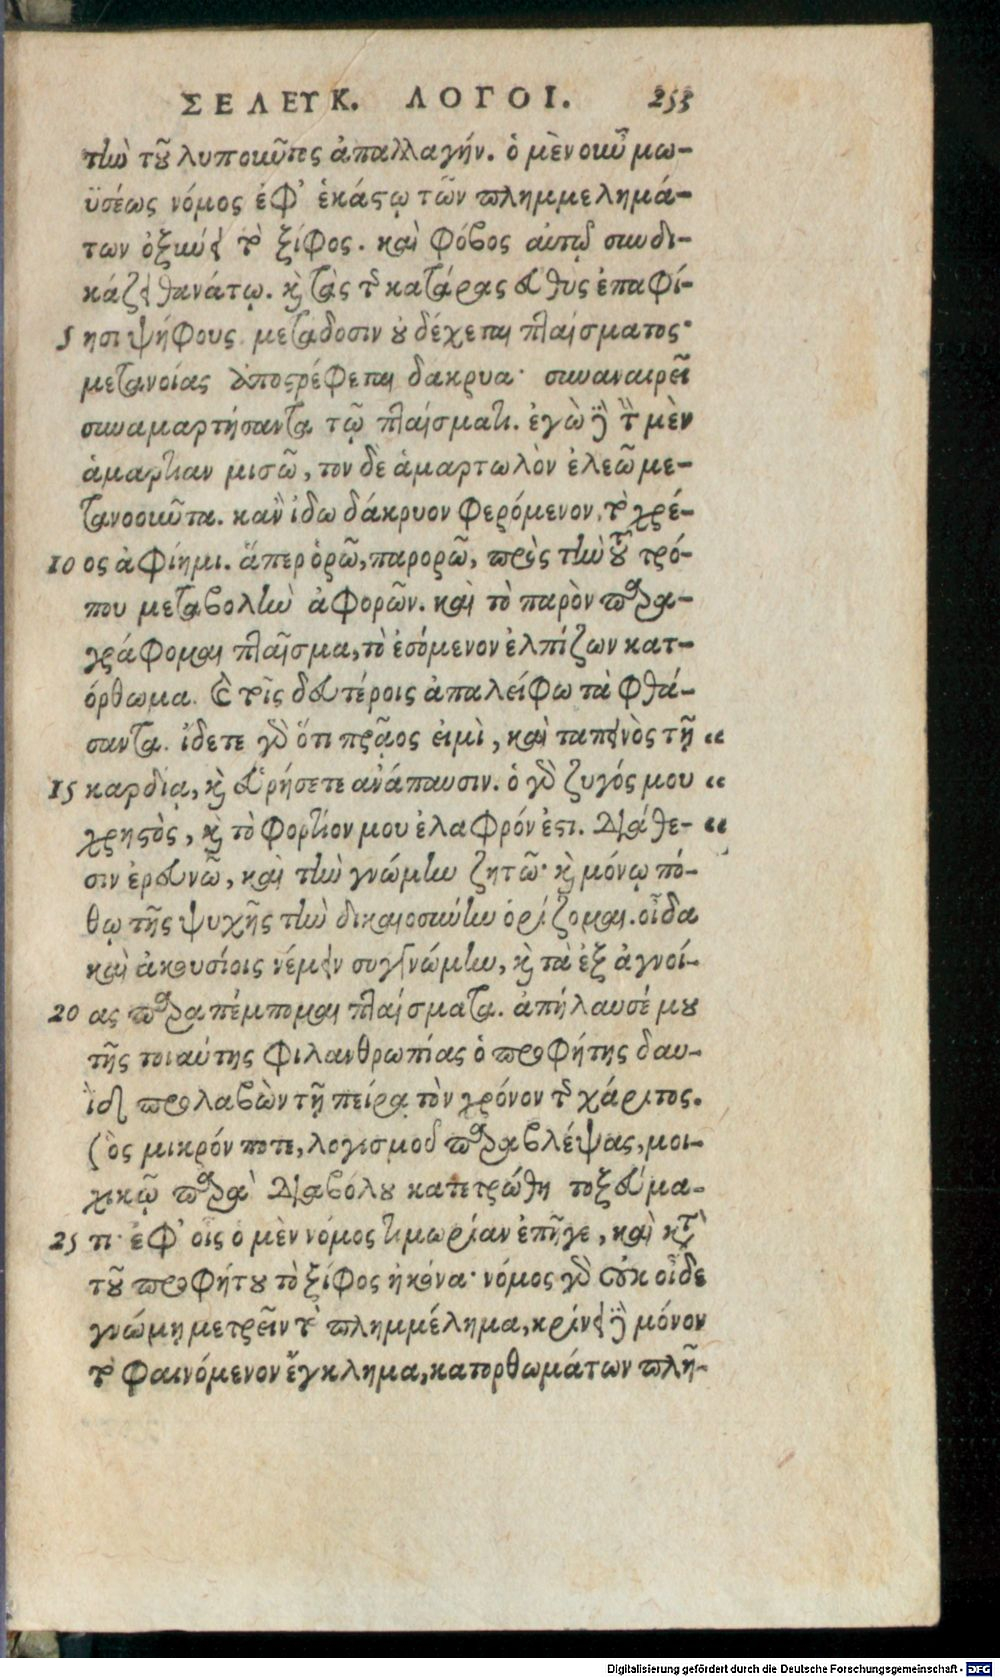 ΣΕΛΕΥΚ. ΛΟΓΟΙ. 253
τὴν τοῦ λυποῦντος ἀπαλλαγήν. ὁ μὲν οὖν μω-
ϋσέως νόμος ἐφ' ἑκάστῳ τῶν πλημμελημά-
των ὀξύνει τὸ ξίφος. καὶ φόβος αὐτῷ συνδι-
κάζει θανάτῳ. καὶ τὰς τῆς κατάρας εὐθὺς ἐπαφί-
5 ησι ψήφους. μετάδοσιν οὐ δέχεται πταίσματος·
μετανοίας ἀποστρέφεται δάκρυα· συναναιρεῖ
συναμαρτήσαντα τῷ πταίσματι. ἐγὼ δὲ τὴν μὲν
ἁμαρτίαν μισῶ, τον δὲ ἁμαρτωλὸν ἐλεῶ με-
τανοοῦντα. κἂν ἴδω δάκρυον φερόμενον, τὸ χρέ-
10 ος ἀφίημι. ἅπερ ὁρῶ, παρορῶ, πρὸς τὴν τοῦ τρό-
που μεταβολὴν ἀφορῶν. καὶ τὸ παρὸν παρα-
γράφομαι πταῖσμα, τὸ ἐσόμενον ἐλπίζων κατ-
όρθωμα. καὶ τοῖς δευτέροις ἀπαλείφω τὰ φθά-
σαντα. ἴδετε γὰρ ὅτι πρᾷος εἰμὶ, καὶ ταπεινὸς τῇ “
15 καρδίᾳ, καὶ εὑρήσετε ἀνάπαυσιν. ὁ γὰρ ζυγός μου “
χρηστὸς, καὶ τὸ φορτίον μου ἐλαφρόν ἐστι. διάθε- “
σιν ἐρευνῶ, καὶ τὴν γνώμην ζητῶ· καὶ μόνῳ πό-
θῳ τῆς ψυχῆς τὴν δικαιοσύνην ὁρίζομαι. οἶδα
καὶ ἀκουσίοις νέμειν συγγνώμην, καὶ τὰ ἐξ ἀγνοί-
20 ας παραπέμπομαι πταίσματα. ἀπήλαυσέ μου
τῆς τοιαύτης φιλανθρωπίας ὁ προφήτης δαυ-
ῒδ προλαβὼν τῇ πείρᾳ τὸν χρόνον τῆς χάριτος.
(ὃς μικρόν ποτε, λογισμοῦ παραβλέψας, μοι-
χικῷ παρὰ διαβόλου κατετρώθη τοξεύμα-
25 τι· ἐφ' οἷς ὁ μὲν νόμος τιμωρίαν ἐπῆγε, καὶ κατὰ
τοῦ προφήτου τὸ ξίφος ἠκόνα· νόμος γὰρ οὐκ οἶδε
γνώμῃ μετρεῖν τὸ πλημμέλημα, κρίνει δὲ μόνον
τὸ φαινόμενον ἔγκλημα, κατορθωμάτων πλῆ-
Digitalisierung gefördert durch die Deutsche Forschungsgemeinschaft - DFG